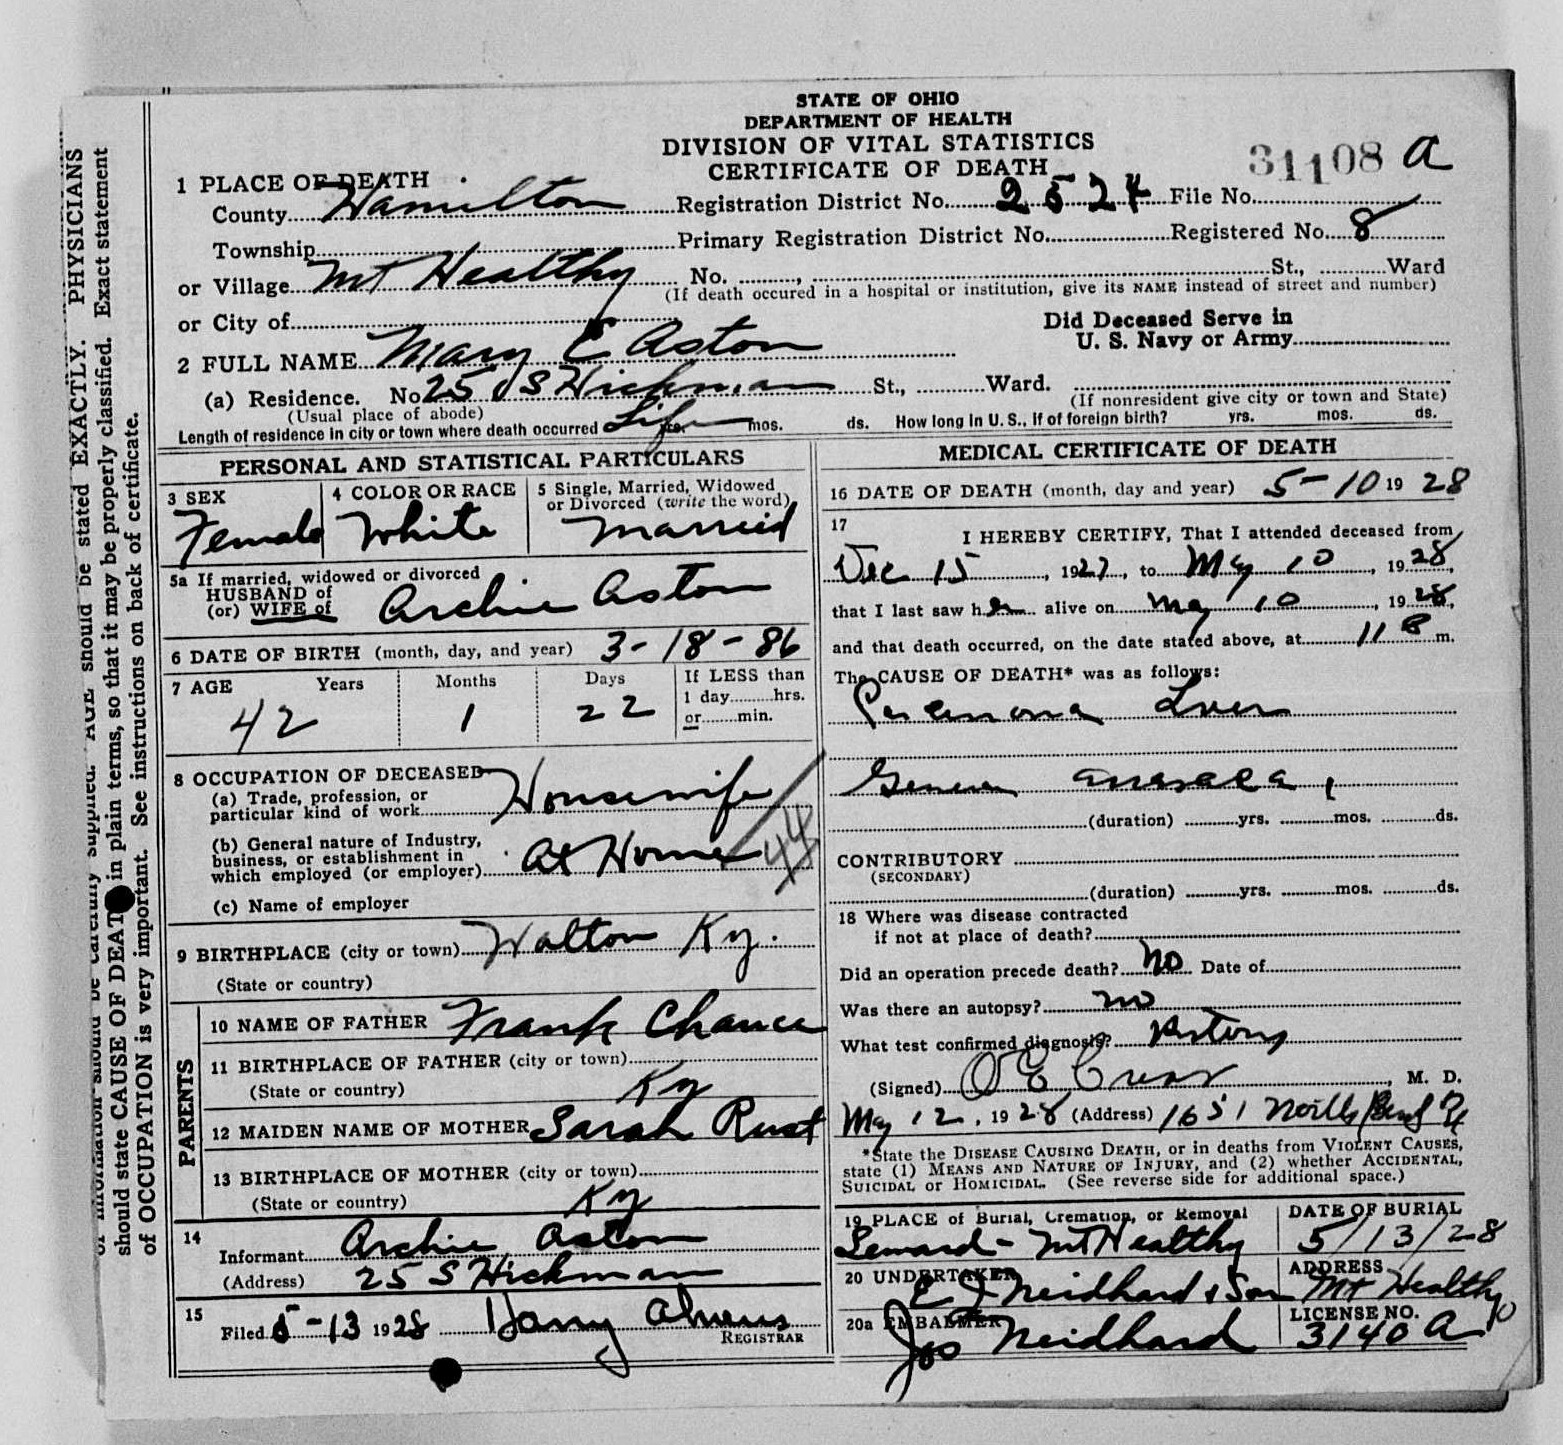 STATE OF OHIO
DEPARTMENT OF HEALTH
DIVISION OF VITAL STATISTICS
CERTIFICATE OF DEATH
31108 a
1 PLACE OF DEATH
County Hamilton Registration District No. 2524 File No.
Township Primary Registration District No. Registered No. 8
or Village Mt Healthy No. , St., Ward
(If death occured in a hospital or institution, give its NAME instead of street and number)
or City of
Did Deceased Serve in
U. S. Navy or Army
2 FULL NAME Mary E Aston
(a) Residence. No 25 S Hickman St., Ward.
(Usual place of abode) (If nonresident give city or town and State)
Length of residence in city or town where death occurred Life yrs. mos. ds. How long in U. S., if of foreign birth? yrs. mos. ds.
PERSONAL AND STATISTICAL PARTICULARS
3 SEX 4 COLOR OR RACE 5 Single, Married, Widowed
or Divorced (write the word)
Female White Married
5a If married, widowed or divorced
HUSBAND of
(or) WIFE of Archie Aston
6 DATE OF BIRTH (month, day, and year) 3-18-86
7 AGE Years Months Days If LESS than
1 day hrs.
or min.
42 1 22
8 OCCUPATION OF DECEASED
(a) Trade, profession, or
particular kind of work Housewife
(b) General nature of Industry,
business, or establishment in
which employed (or employer) At Home
44
(c) Name of employer
9 BIRTHPLACE (city or town) Walton Ky.
(State or country)
PARENTS
10 NAME OF FATHER Frank Chance
11 BIRTHPLACE OF FATHER (city or town)
(State or country) Ky
12 MAIDEN NAME OF MOTHER Sarah Rust
13 BIRTHPLACE OF MOTHER (city or town)
(State or country) Ky
14
Informant Archie Aston
(Address) 25 S Hickman
15
Filed 5-13 1928 Harry Ahrens
REGISTRAR
MEDICAL CERTIFICATE OF DEATH
16 DATE OF DEATH (month, day and year) 5-10 1928
17
I HEREBY CERTIFY, That I attended deceased from
Dec 15, 1927, to May 10, 1928,
that I last saw her alive on May 10, 1928,
and that death occurred, on the date stated above, at 11 m.
The CAUSE OF DEATH* was as follows:
Carcinoma Liver
(duration) yrs. mos. ds.
CONTRIBUTORY
(SECONDARY)
(duration) yrs. mos. ds.
18 Where was disease contracted
if not at place of death?
Did an operation precede death? No Date of
Was there an autopsy? no
What test confirmed diagnosis? History
(Signed) O E , M. D.
May 12, 1928 (Address) 1651
*State the DISEASE CAUSING DEATH, or in deaths from VIOLENT CAUSES,
state (1) MEANS AND NATURE OF INJURY, and (2) whether ACCIDENTAL,
SUICIDAL or HOMICIDAL. (See reverse side for additional space.)
19 PLACE of Burial, Cremation, or Removal DATE OF BURIAL
Mt Healthy 5/13/28
20 UNDERTAKER ADDRESS
E J Neidhard & Son Mt Healthy O
20a EMBALMER LICENSE NO.
Jos Neidhard 3140 A
PHYSICIANS
should be carefully supplied. AGE should be stated EXACTLY.
should state CAUSE OF DEATH in plain terms, so that it may be properly classified. Exact statement
of OCCUPATION is very important. See instructions on back of certificate.